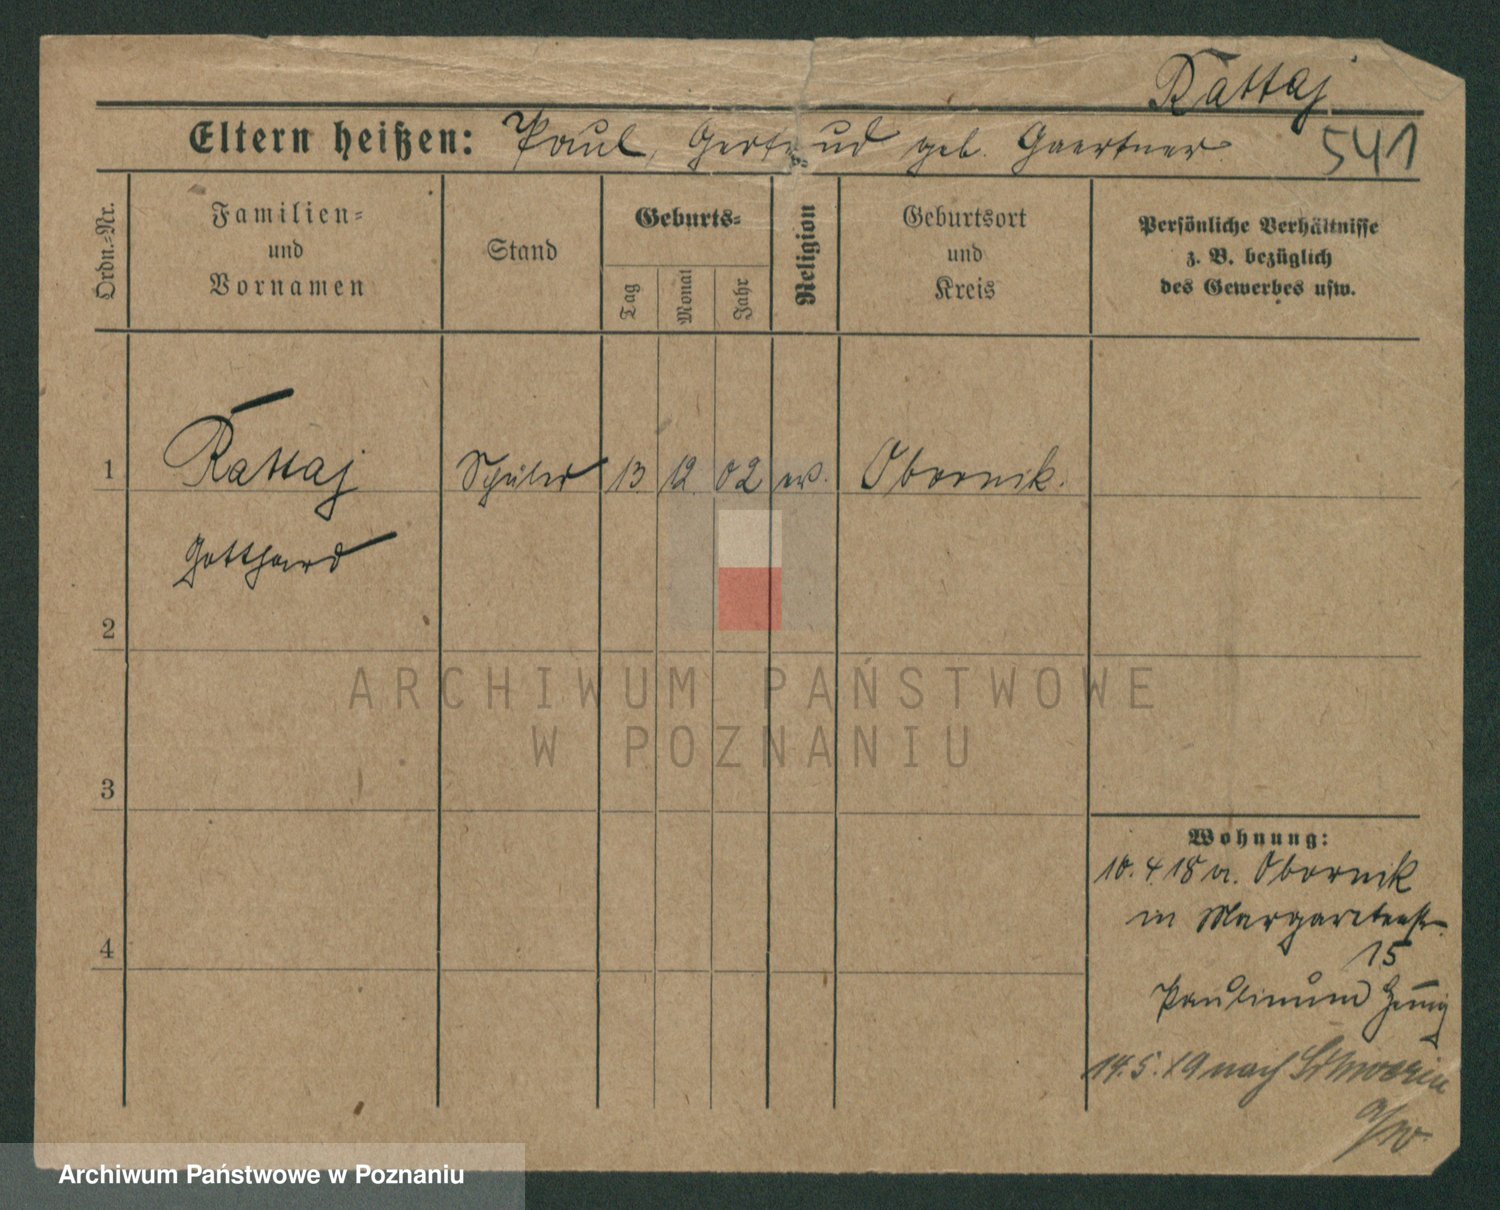 Rattaj
Eltern heißen: Paul, Gertrud geb. Gaertner 541
Ordn.-Nr.
Familien-
und
Vornamen
Stand
Geburts-
Tag
Monat
Jahr
Religion
Geburtsort
und
Kreis
Persönliche Verhältnisse
z. B. bezüglich
des Gewerbes usw.
1 Rattaj Schüler 13. 12. 02 ev. Obornik.
Gotthard
2
3
4
Wohnung:
10. 4. 18 v. Obornik
in Margaretenstr.
15
Paulinum
14. 5. 19 nach Schwerin
a/W.
ARCHIWUM PAŃSTWOWE
W POZNANIU
Archiwum Państwowe w Poznaniu